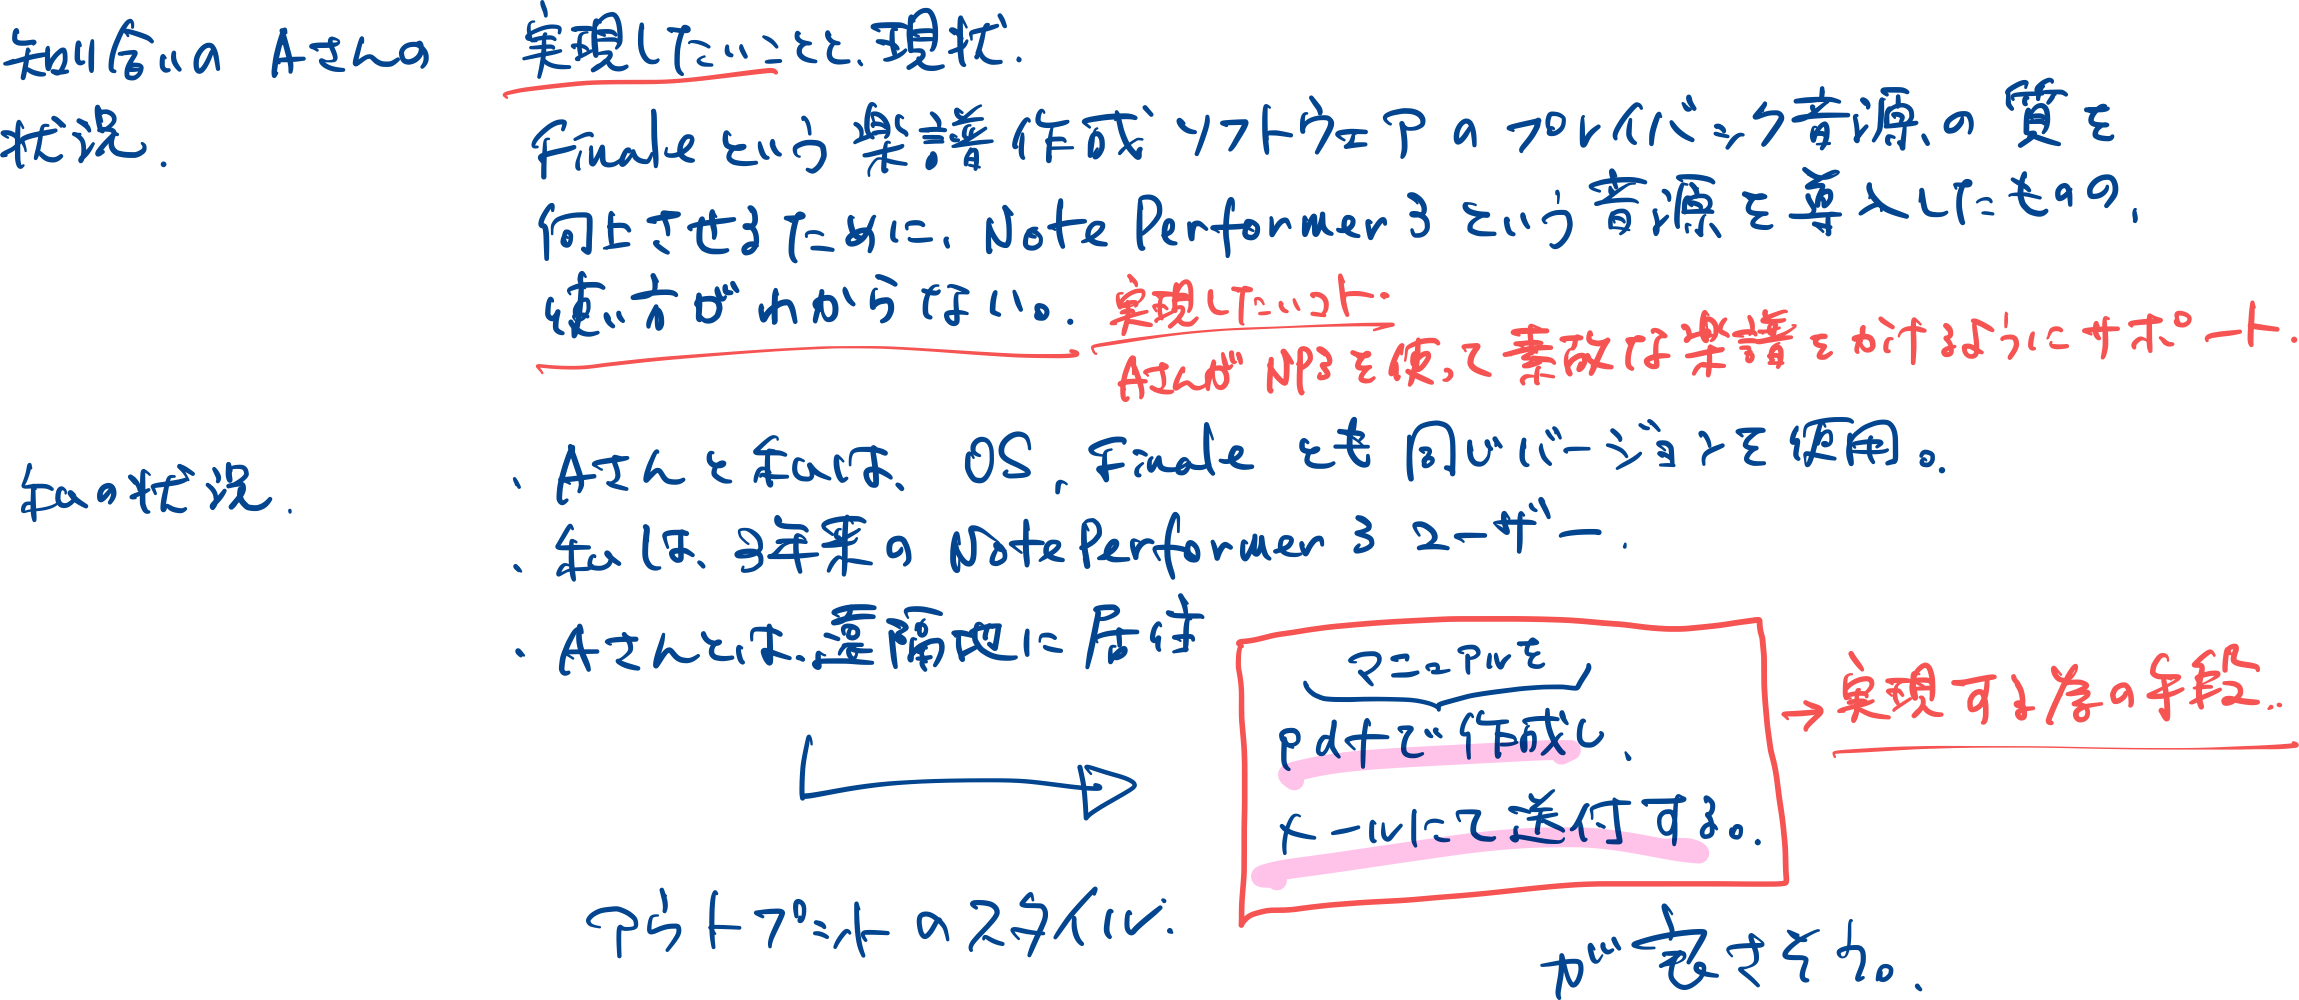 知り合いの Aさんの
状況.
実現したいことと、現状.
Finaleという楽譜作成ソフトウェアのプレイバック音源の質を
向上させるために、Note Performer 3という音源を導入したものの、
使い方がわからない。.
実現したいコト.
AさんがNP3を使って素敵な楽譜をかけるようにサポート.
私の状況.
・Aさんと私は、OS、Finaleとも同じバージョンを使用。
・私は、3年来のNotePerformer 3 ユーザー.
・Aさんとは、遠隔地に居住
マニュアルを
pdfで作成し、
メールにて送付する。.
→実現する為の手段..
アウトプットのスタイル.
が良さそう。.